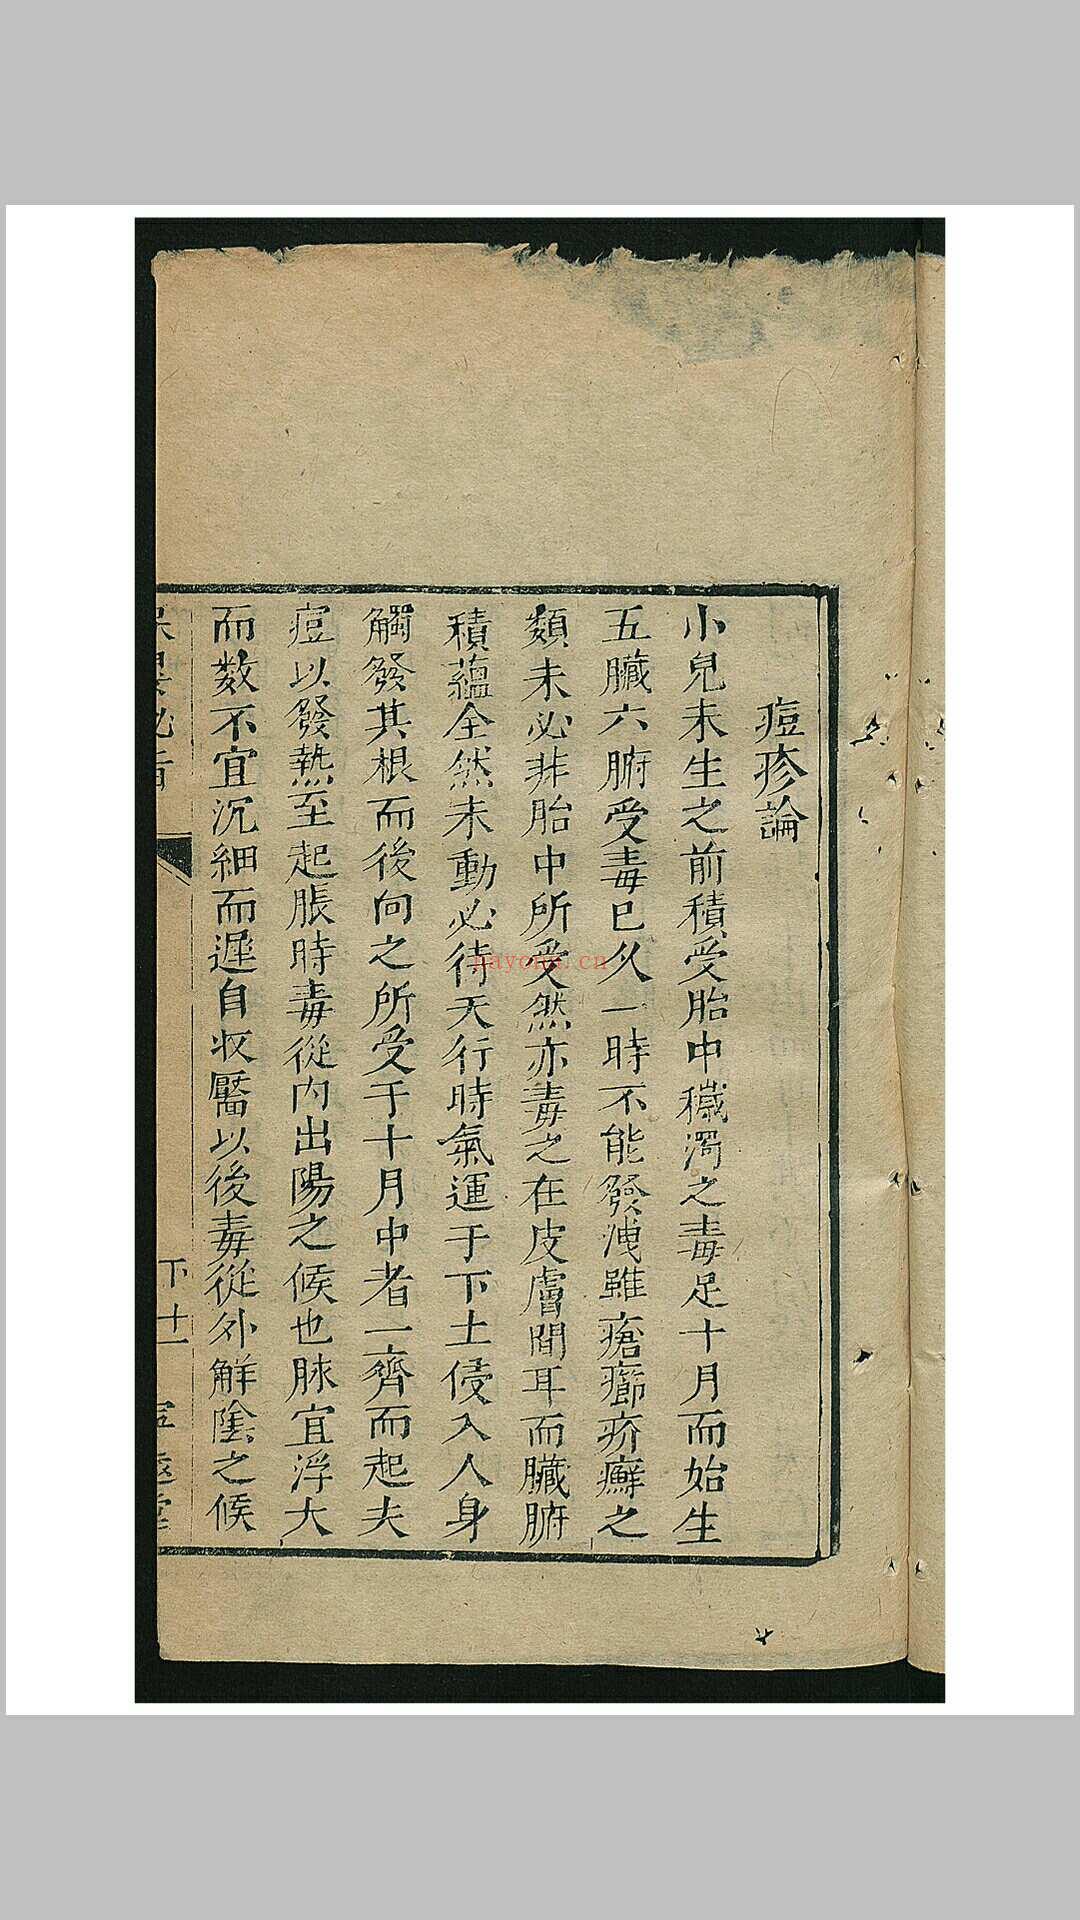 痘疹論
小兒未生之前積受胎中穢濁之毒足十月而始生
五臟六腑受毒已久一時不能發洩雖瘡癤疥癬之
類未必非胎中所受然亦毒之在皮膚間耳而臟腑
積蘊全然未動必待天行時氣運于下土侵入人身
觸發其根而後向之所受于十月中者一齊而起夫
痘以發熱至起脹時毒從内出陽之候也脉宜浮大
而数不宜沉細而遲自收靨以後毒從外解陰之候
下十一